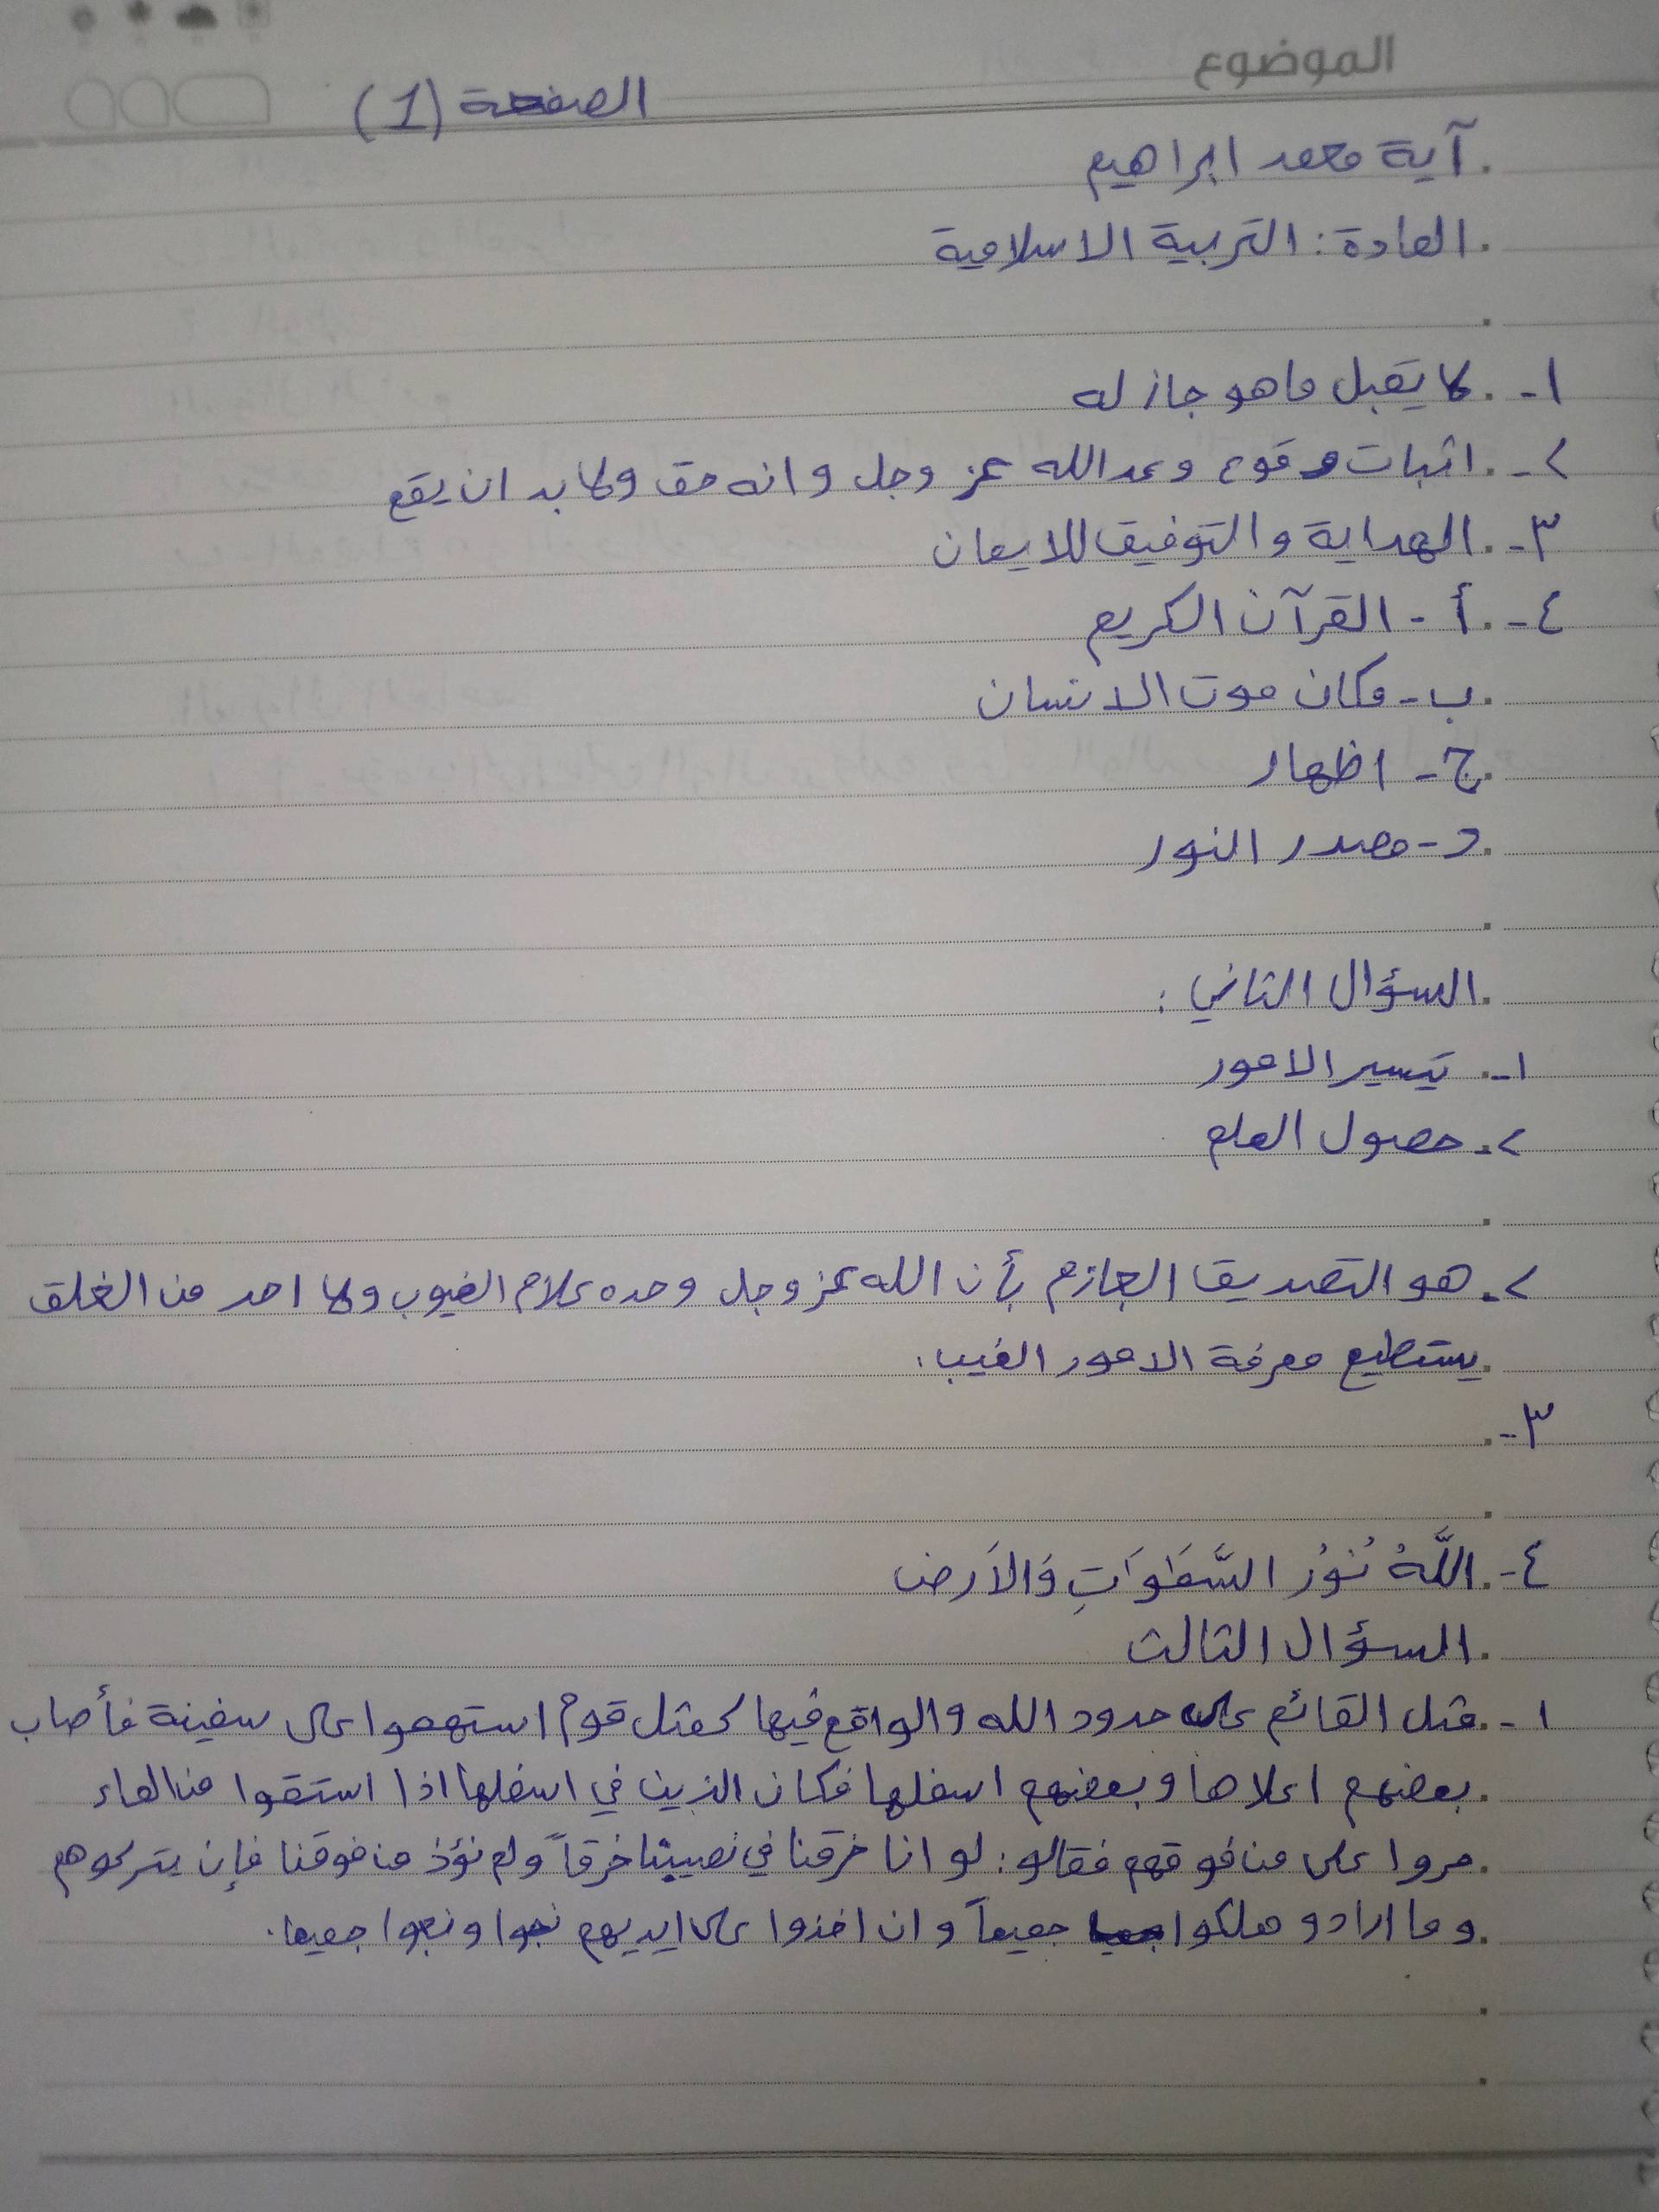 الموضوع
الصفحة (1)
آية محمد ابراهيم
المادة : التربية الاسلامية
١- لا يقبل ما هو جاز له
٢- اثبات وقوع وعد الله عز وجل وانه حق ولا بد ان يقع
٣- الهداية والتوفيق للايمان
٤- أ - القرآن الكريم
ب - مكان موت الانسان
ج - اظهار
د - مصدر النور
السؤال الثاني :
١- تيسير الامور
٢- حصول العلم
٢- هو التصديق الجازم بأن الله عز وجل وحده علام الغيوب ولا احد من الخلق
يستطيع معرفة الامور الغيب .
٣-
٤- اللَّهُ نُورُ السَّمَٰوَاتِ وَالأَرض
السؤال الثالث
١- مثل القائم على حدود الله والواقع فيها كمثل قوم استهموا على سفينة فأصاب
بعضهم اعلاها وبعضهم اسفلها فكان الذين في اسفلها اذا استقوا من الماء
مروا على من فوقهم فقالو : لو انا خرقنا في نصيبنا خرقاً ولم نؤذ من فوقنا فإن يتركوهم
وما ارادو هلكوا جميعاً وان اخذوا على ايديهم نجوا ونجوا جميعا .